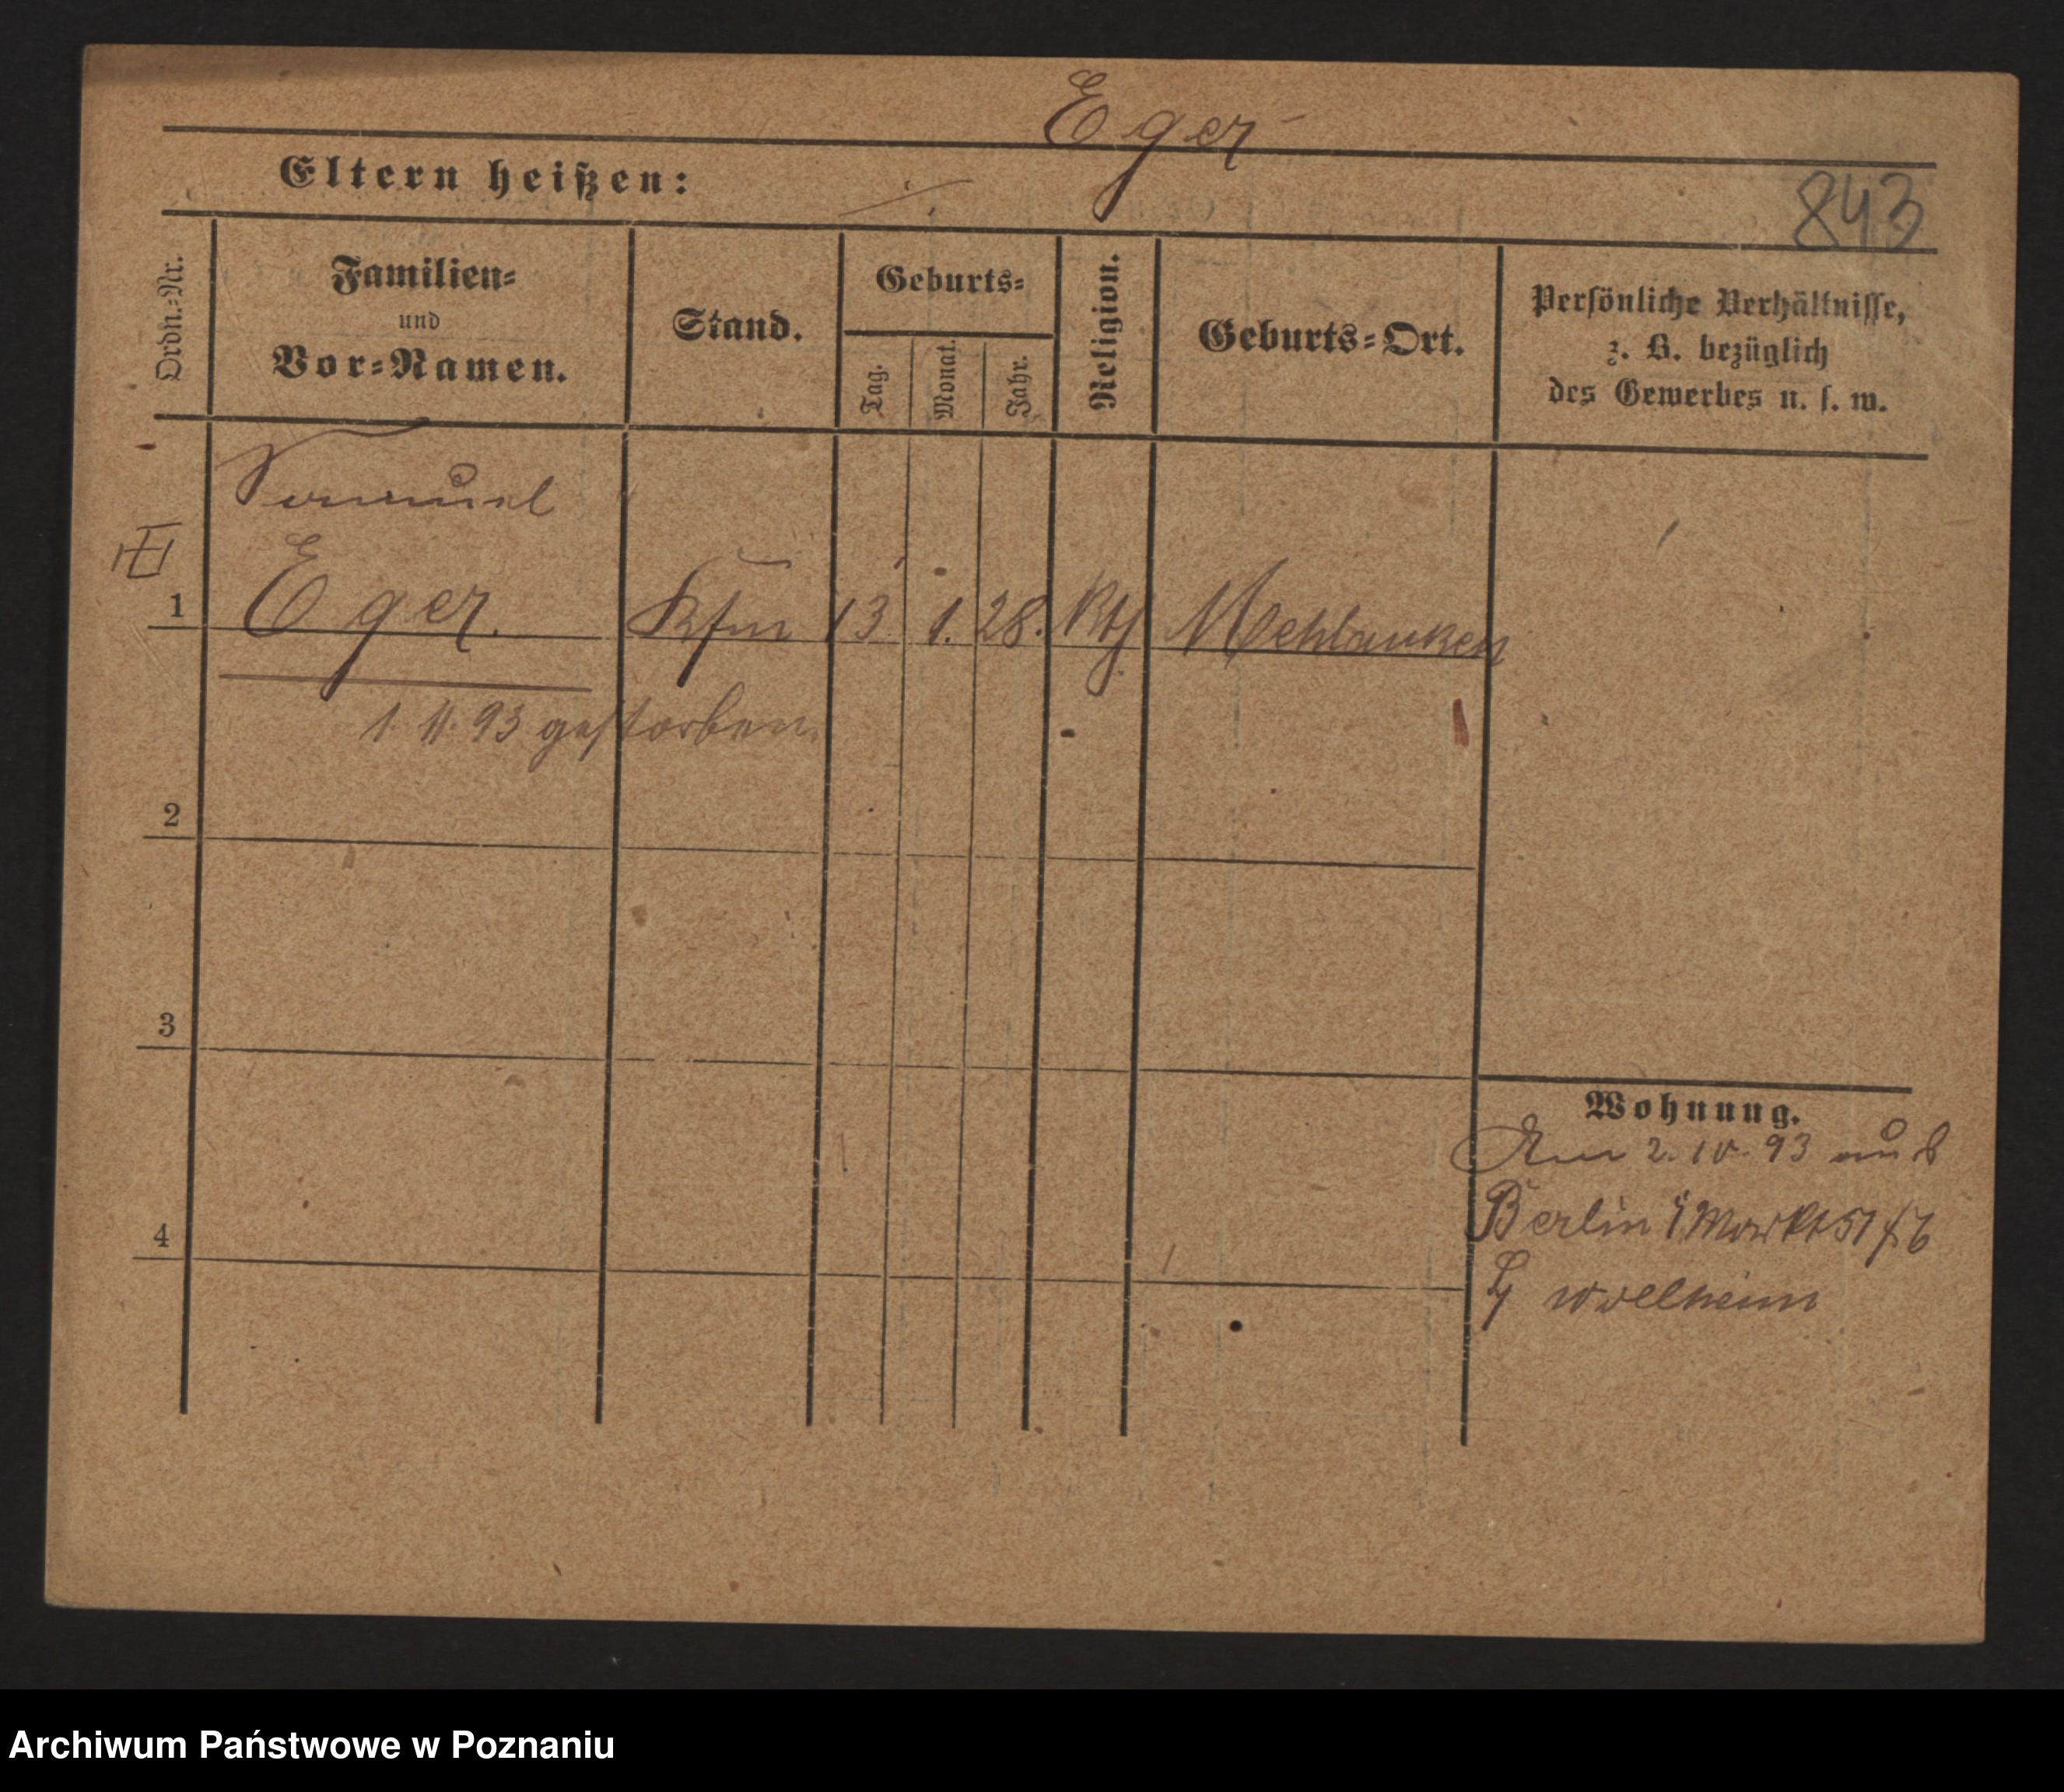 Eger
Eltern heißen:
843
Ordn.-Nr.
Familien-
und
Vor-Namen.
Stand.
Geburts-
Tag.
Monat.
Jahr.
Religion.
Geburts-Ort.
Persönliche Verhältnisse,
z. B. bezüglich
des Gewerbes u. s. w.
Samuel
1 Eger. Kfm 13 1. 28. Mehlauken
1. 11. 93 gestorben.
2
3
4
Wohnung.
Am 2. 10. 93 aus
Berlin Markt 51
Archiwum Państwowe w Poznaniu